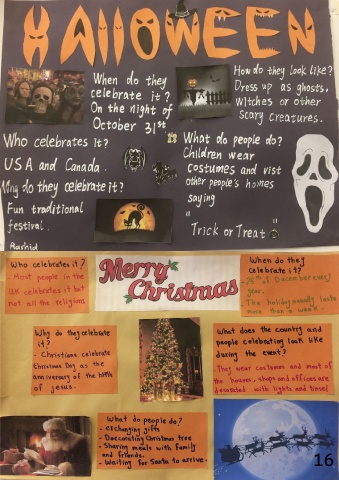 HALLOWEEN
When do they
celebrate it?
On the night of
October 31st
How do they look like?
Dress up as ghosts,
witches or other
scary creatures.
Who celebrates it?
USA and Canada.
Why do they celebrate it?
Fun traditional
festival.
Rashid
What do people do?
Children wear
costumes and visit
other people's homes
saying
"
Trick or Treat
Merry
Christmas
Who celebrates it?
Most people in the
UK celebrates it but
not all the religions
When do they
celebrate it?
25th of December every
year.
The holiday usually lasts
more than a week.
Why do they celebrate
it?
- Christians celebrate
Christmas Day as the
anniversary of the birth
of Jesus.
What does the country and
people celebrating look like
during the event?
They wear costumes and most of
the houses, shops and offices are
decorated with lights and tinsel
What do people do?
- exchanging gifts
- Decorating Christmas tree
- Sharing meals with family
and friends.
- Waiting for Santa to arrive.
16